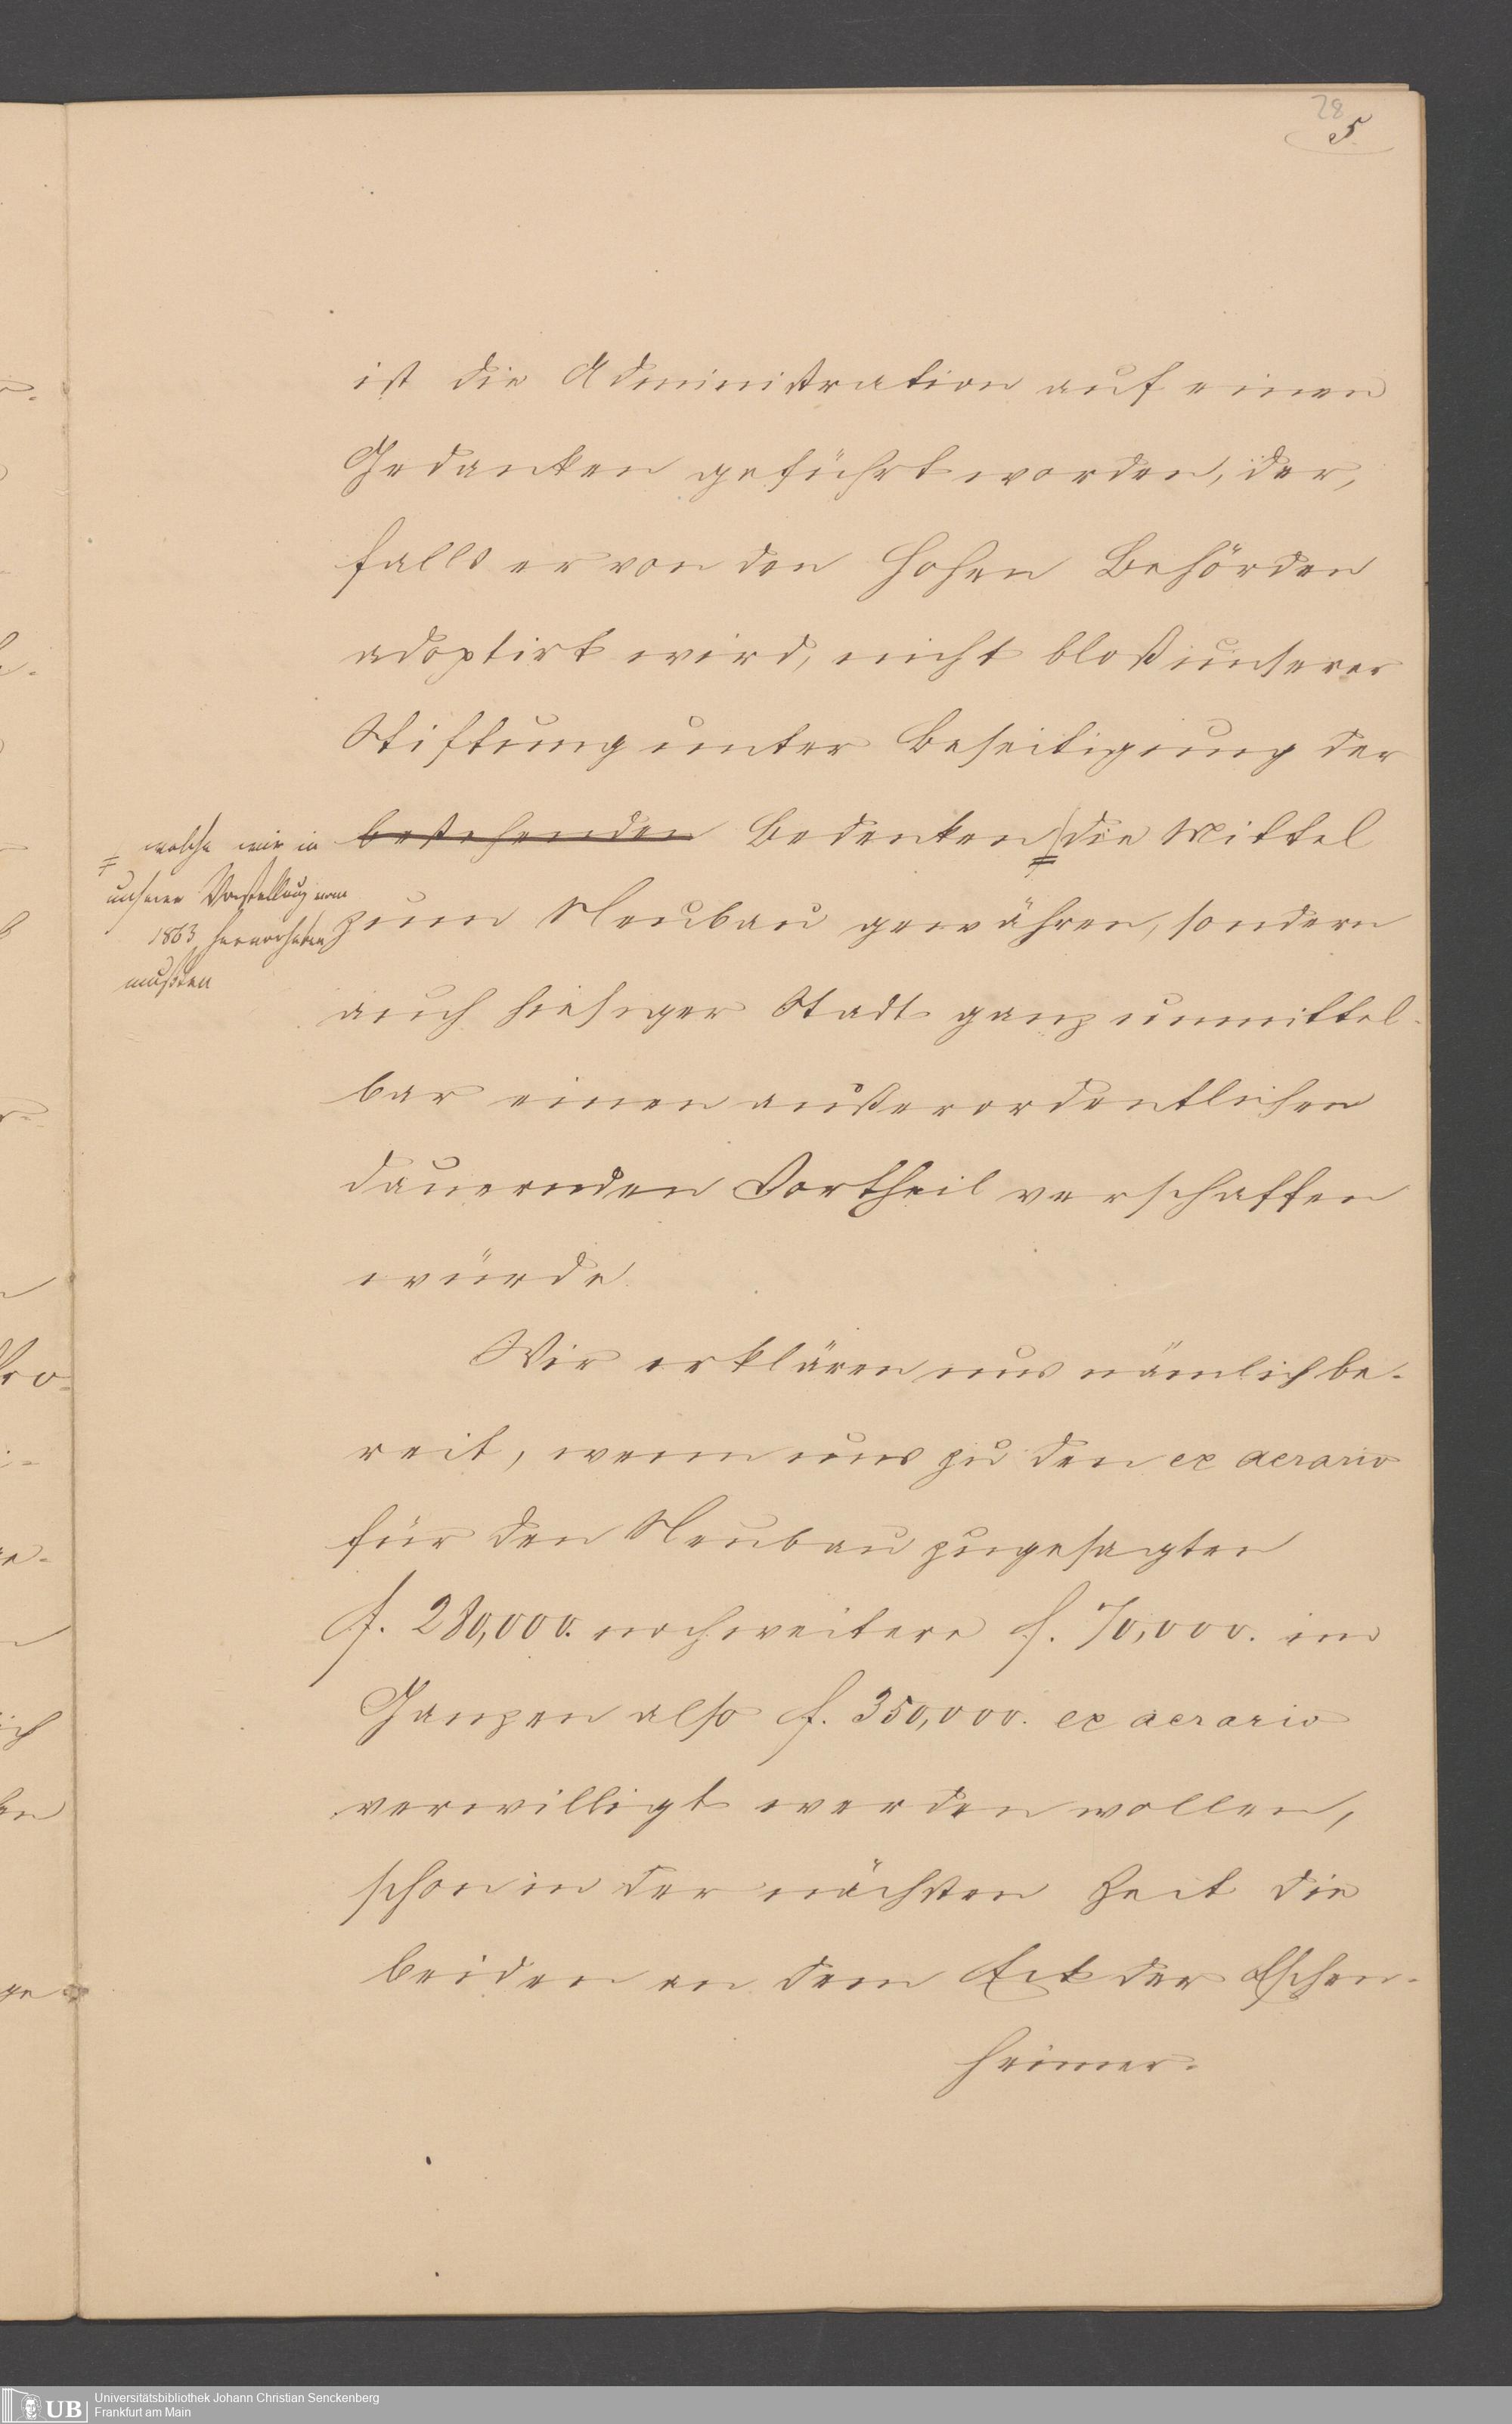 28
5
ist die Administration auf einen
Gedanken geführt worden, der,
falls er von den Hohen Behörden
adoptirt wird, nicht bloß unserer
Stiftung unter Beseitigung der
bestehenden Bedenken die Mittel
= welche wir in
unserer Vorstellung vom
1863 hervorheben
mußten
zum Neubau gewähren, sondern
auch hiesiger Stadt ganz unmittel-
bar einen außerordentlichen
dauernden Vortheil verschaffen
würde.
Wir erklären uns nämlich be-
reit, wenn uns zu den ex aerario
für den Neubau zugesagten
f. 280,000. noch weitere f. 70,000. im
Ganzen also f. 350,000. ex aerario
verwilligt werden wollen,
schon in der nächsten Zeit die
beiden an dem Eck der Eschen-
heimer-
Universitätsbibliothek Johann Christian Senckenberg
Frankfurt am Main
UB